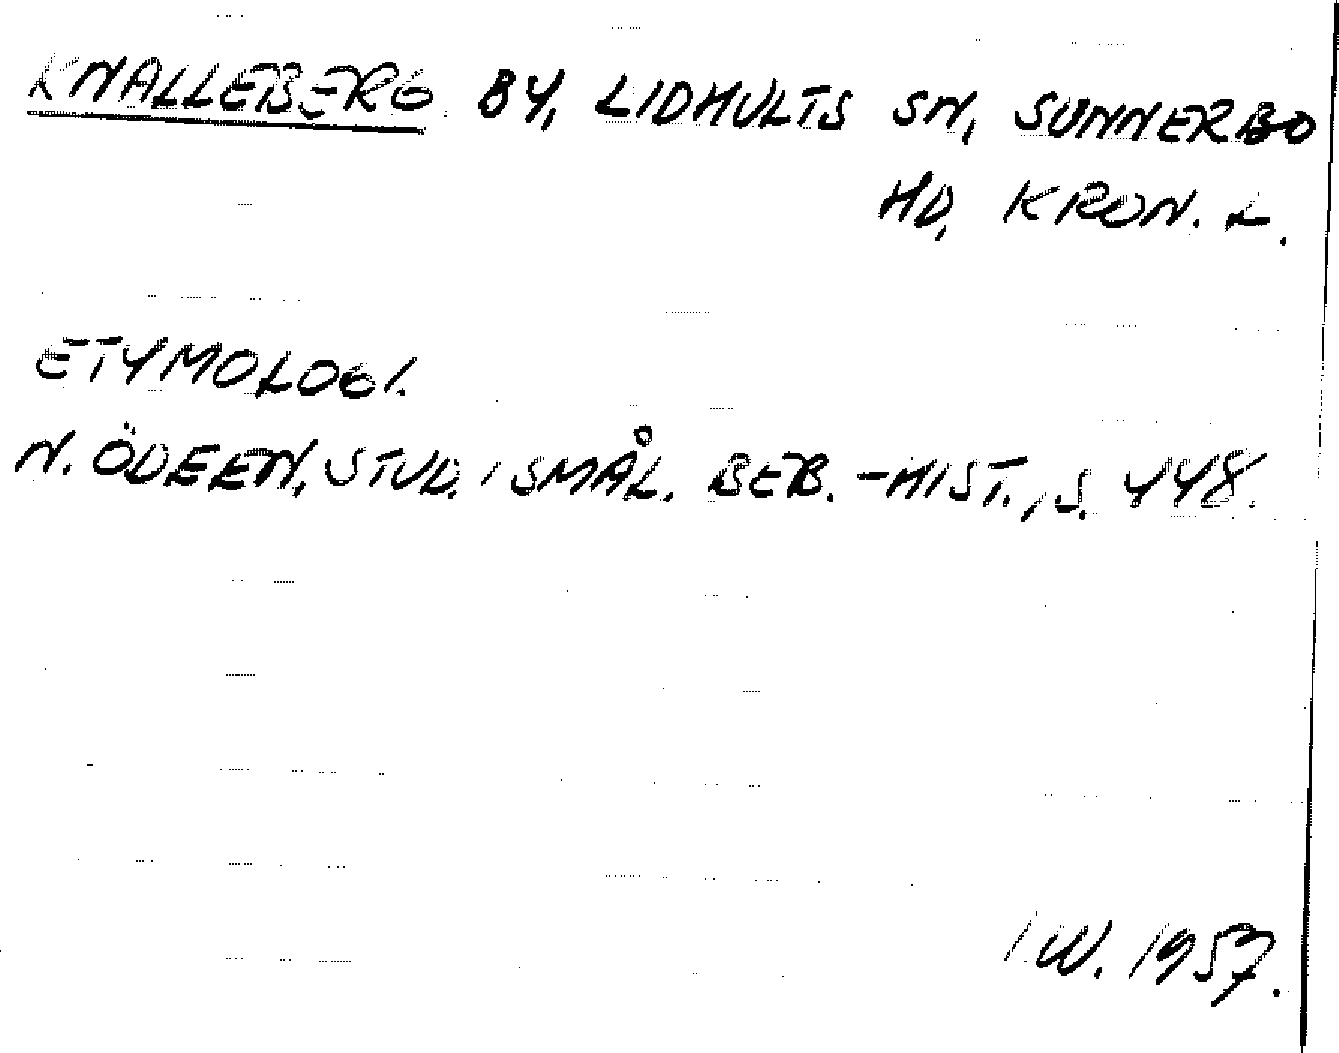 KNALLEBERG BY, LIDHULTS SN, SUNNERBO
HD, KRON. L.
ETYMOLOGI.
N. ÖDEEN, STUD. I SMÅL. BEB.-HIST., S. 448.
I W. 1957.